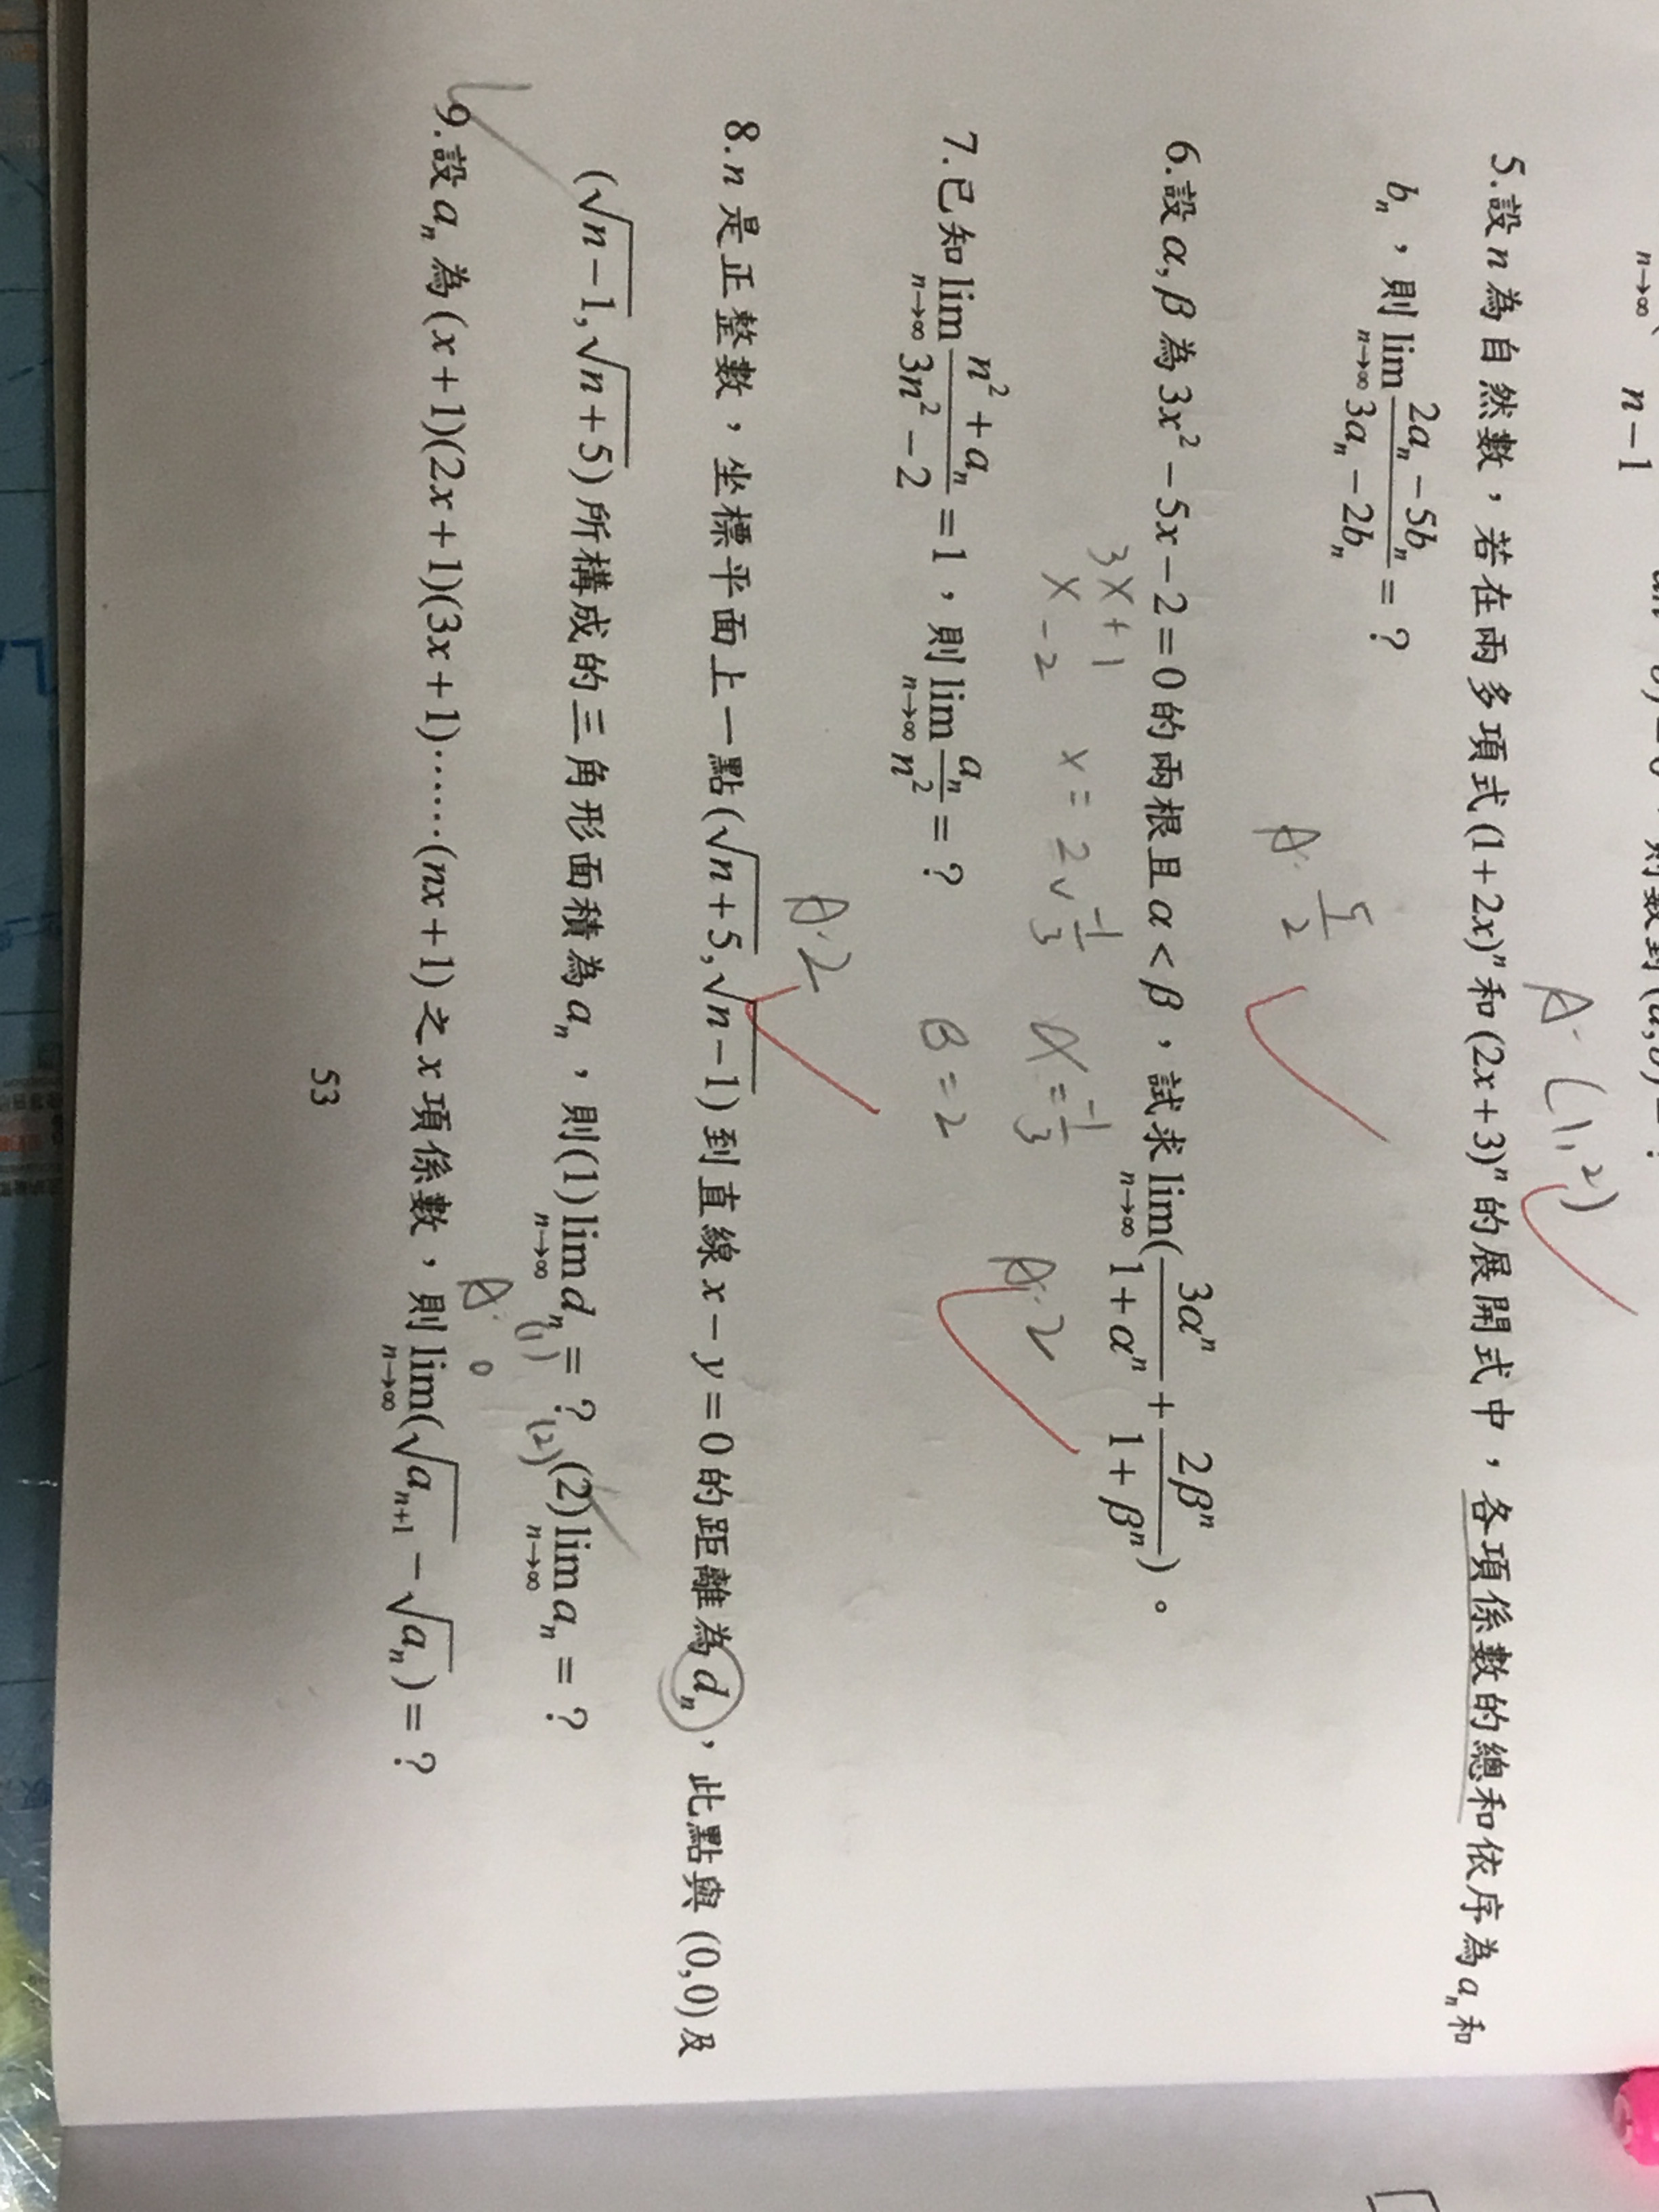 n→∞ n-1
A. (1, 2)
5.設 n 為自然數，若在兩多項式 (1+2x)ⁿ 和 (2x+3)ⁿ 的展開式中，各項係數的總和依序為 aₙ 和
bₙ，則 lim_{n→∞} (2aₙ-5bₙ)/(3aₙ-2bₙ) = ?
A. 5/2
6.設 α, β 為 3x²-5x-2=0 的兩根且 α<β，試求 lim_{n→∞} (3αⁿ/(1+αⁿ) + 2βⁿ/(1+βⁿ))。
3x +1
x -2
x = 2, -1/3
α = -1/3
β = 2
A. 2
7.已知 lim_{n→∞} (n²+aₙ)/(3n²-2) = 1，則 lim_{n→∞} aₙ/n² = ?
A. 2
8.n 是正整數，坐標平面上一點 (√(n+5), √(n-1)) 到直線 x-y=0 的距離為 dₙ，此點與 (0,0) 及
(√(n-1), √(n+5)) 所構成的三角形面積為 aₙ，則 (1) lim_{n→∞} dₙ = ? (2) lim_{n→∞} aₙ = ?
A. (1) 0 (2)
9.設 aₙ 為 (x+1)(2x+1)(3x+1)……(nx+1) 之 x 項係數，則 lim_{n→∞} (√aₙ₊₁ - √aₙ) = ?
53